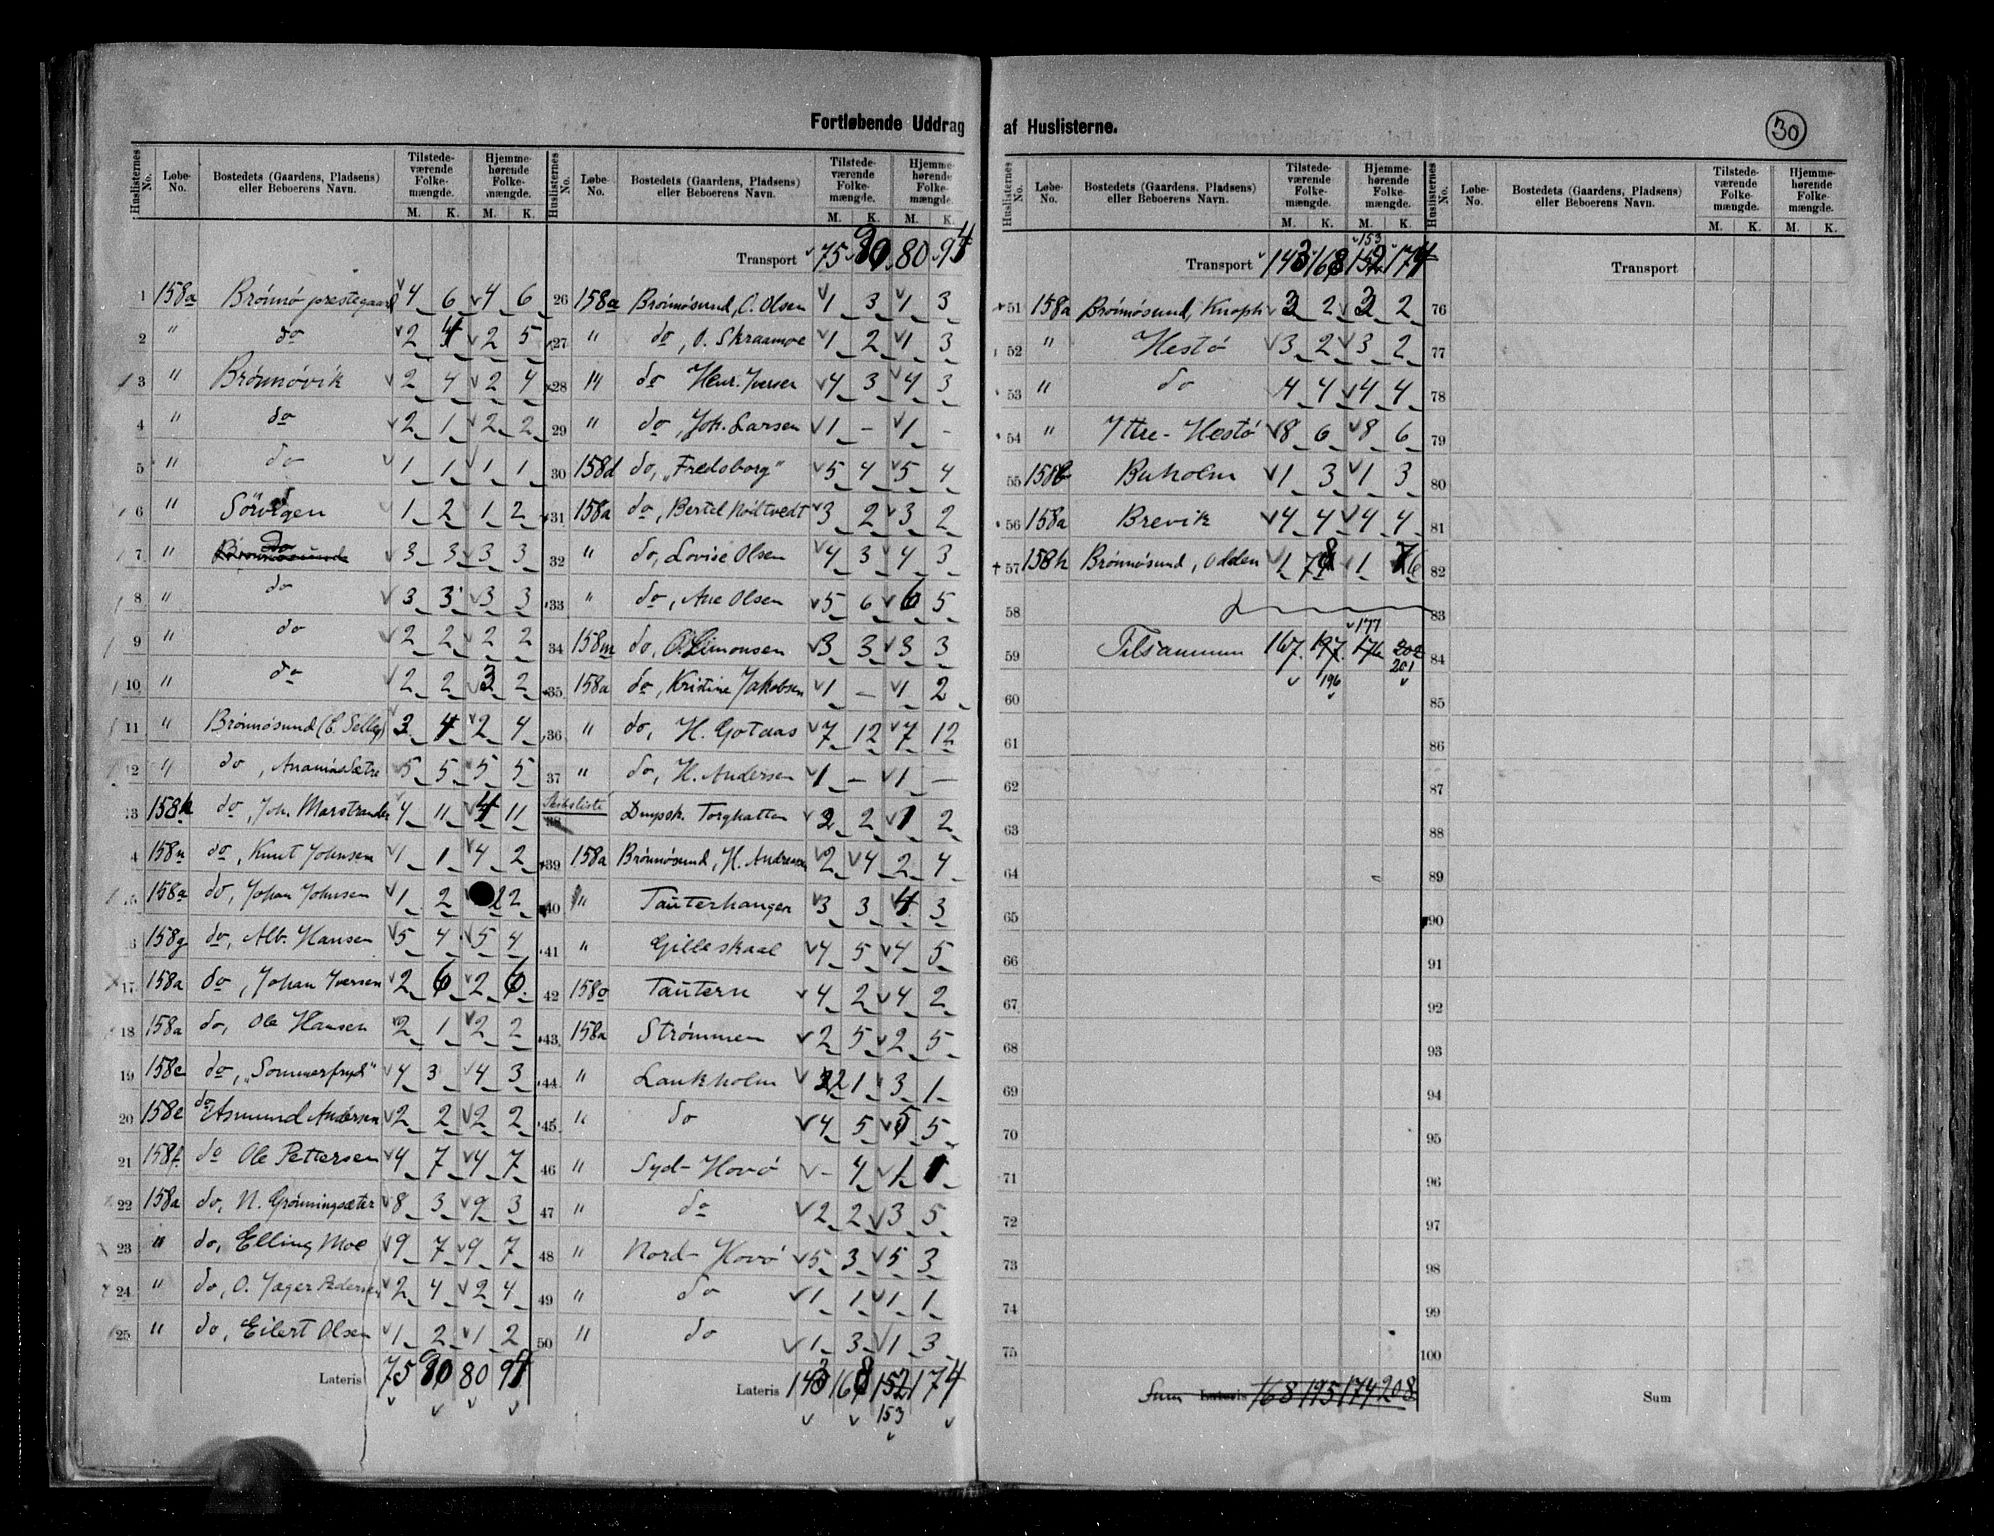 Fortløbende Uddrag af Huslisterne.
30
Huslisternes No. Løbe-No. Bostedets (Gaardens, Pladsens) eller Beboerens Navn. Tilstedeværende Folkemængde. M. K. Hjemmehørende Folkemængde. M. K.
1 158a Brønnø prestegaard 4 6 4 6
2 " do 2 4 2 5
3 " Brønnøvik 2 4 2 4
4 " do 2 1 2 2
5 " do 1 1 1 1
6 " Sörvigen 1 2 1 2
7 " do 3 3 3 3
8 " do 3 3 3 3
9 " do 2 2 2 2
10 " do 2 2 3 2
11 " Brønnøsund 3 4 2 4
12 " do, 5 5 5 5
13 158k do, Joh. Marstrander 4 11 4 11
14 158n do, Knut Johnsen 1 1 4 2
15 158a do, Johan Johnsen 1 2 2
16 158g do, Alb. Hansen 5 4 5 4
17 158a do, Johan Iversen 2 6 2 6
18 158a do, Ole Hansen 2 1 2 2
19 158c do, „Sommerfryd" 4 3 4 3
20 158e do Asmund Andersen 2 2 2 2
21 158f do Ole Pettersen 4 7 4 7
22 158a do, N. Grønningsæter 8 3 9 3
23 " do, Elling Moe 9 7 9 7
24 " do, O. Jæger Pedersen 2 4 2 4
25 " do, Eilert Olsen 1 2 1 2
Lateris 75 90 80 94
Huslisternes No. Løbe-No. Bostedets (Gaardens, Pladsens) eller Beboerens Navn. Tilstedeværende Folkemængde. M. K. Hjemmehørende Folkemængde. M. K.
Transport 75 90 80 94
26 158a Brønnøsund, O. Olsen 1 3 1 3
27 " do, O. Skraamoe 1 2 1 3
28 " do Henr. Iversen 4 3 4 3
29 " do, Joh. Larsen 1 - 1 -
30 158d do, „Fredsborg" 5 4 5 4
31 158a do, Bertel 3 2 3 2
32 " do, Lovise Olsen 4 3 4 3
33 " do, Ane Olsen 5 6 6 5
34 158m do, O. Simonsen 3 3 3 3
35 158a do, Kristine Jakobsen 1 - 1 2
36 " do, H. Gotaas 7 12 7 12
37 " do, H. Andersen 1 - 1 -
Skibsliste 38 Dmpsk. Torghatten 2 2 1 2
39 158a Brønnøsund, H. Andreassen 2 4 2 4
40 " Tauterhangen 3 3 4 3
41 " Gilleskaal 4 5 4 5
42 158o Tautern 4 2 4 2
43 158a Strømmen 2 5 2 5
44 " Lankholm 2 1 3 1
45 " do 4 5 5 5
46 " Syd-Hovø - 4 1
47 " do 2 2 3 5
48 " Nord-Hovø 5 3 5 3
49 " do 1 1 1 1
50 " do 1 3 1 3
Lateris 143 168 152 174
153
Huslisternes No. Løbe-No. Bostedets (Gaardens, Pladsens) eller Beboerens Navn. Tilstedeværende Folkemængde. M. K. Hjemmehørende Folkemængde. M. K.
153
Transport 143 168 152 174
51 158a Brønnøsund, 3 2 3 2
52 " Hestø 3 2 3 2
53 " do 4 4 4 4
54 " Yttre-Hestø 8 6 8 6
55 158b Buholm 1 3 1 3
56 158a Brevik 4 4 4 4
57 158h Brønnøsund, Odden 1 1
58
177
59 Tilsammen 167 197 176 202
196 201
60
61
62
63
64
65
66
67
68
69
70
71
72
73
74
75
Sum Lateris 168 195 174 208
Huslisternes No. Løbe-No. Bostedets (Gaardens, Pladsens) eller Beboerens Navn. Tilstedeværende Folkemængde. M. K. Hjemmehørende Folkemængde. M. K.
Transport
76
77
78
79
80
81
82
83
84
85
86
87
88
89
90
91
92
93
94
95
96
97
98
99
100
Sum